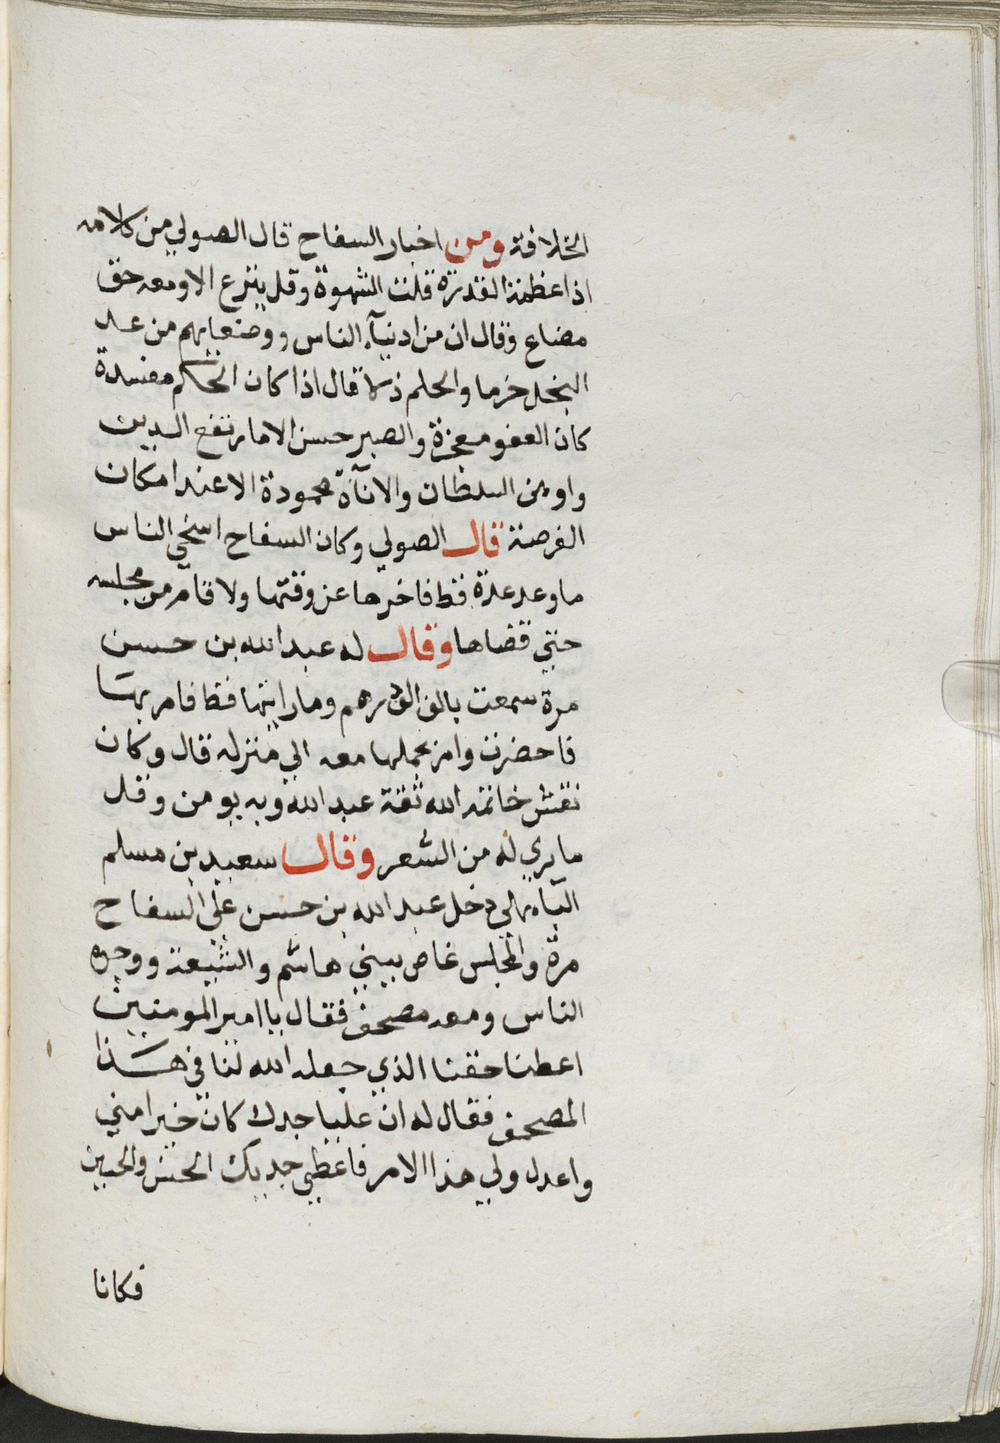 الخلافة ومن اخبار السفاح قال الصولي من كلامه
اذا عظمة القدرة قلت الشهوة وقل بتزع الا ومعه حق
مضاع وقال ان من ادنياء الناس ووضعايهم من عد
البخل حزما والحلم ذلا قال اذا كان الحكم مفسدة
كان العفو معجزة والصبر حسن الا ما رتفع الدين
واوهن السلطان والاناة محمودة الا عند امكان
الفرصة قال الصولي وكان السفاح اسخي الناس
ما وعد عدة قط فاخرها عن وقتها ولا قام من مجلسه
حتي قضاها وقال له عبد الله بن حسن
مرة سمعت بالف الف درهم وما رايتها قط فامر بها
فاحضرت وامر بحملها معه الي منزله قال وكان
نقش خاتمه الله ثقة عبد الله وبه يومن وقل
ما يري له من الشعر وقال سعيد بن مسلم
الباهلي دخل عبد الله بن حسن علي السفاح
مرة والمجلس غاص ببني هاشم والشيعة ووجوه
الناس ومعه مصحف فقال يا امير المومنين
اعطنا حقنا الذي جعله الله لنا في هذا
المصحف فقال له ان عليا جدك كان خيرا مني
واعدل ولي هذا الامر فاعطي جديك الحسن والحسين
فكانا